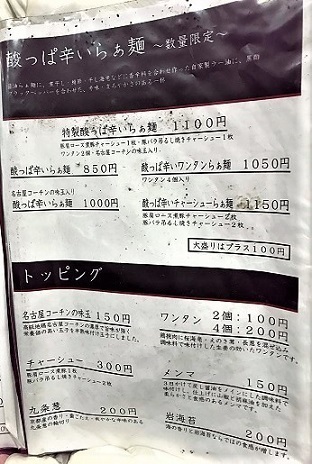 酸っぱ辛いらぁ麺 〜数量限定〜
特製酸っぱ辛いらぁ麺 1100円
豚肩ロース煮豚チャーシュー1枚・豚バラ吊るし焼きチャーシュー1枚
ワンタン2個・名古屋コーチンの味玉入り
酸っぱ辛いらぁ麺 850円
酸っぱ辛いワンタンらぁ麺 1050円
ワンタン4個入り
名古屋コーチンの味玉入り
酸っぱ辛いらぁ麺 1000円
酸っぱ辛いチャーシューらぁ麺 1150円
豚肩ロース煮豚チャーシュー2枚
豚バラ吊るし焼きチャーシュー2枚
大盛りはプラス100円
トッピング
名古屋コーチンの味玉 150円
ワンタン 2個：100円
4個：200円
チャーシュー 300円
豚肩ロース煮豚1枚
豚バラ吊るし焼きチャーシュー2枚
メンマ 150円
九条葱 200円
岩海苔 200円